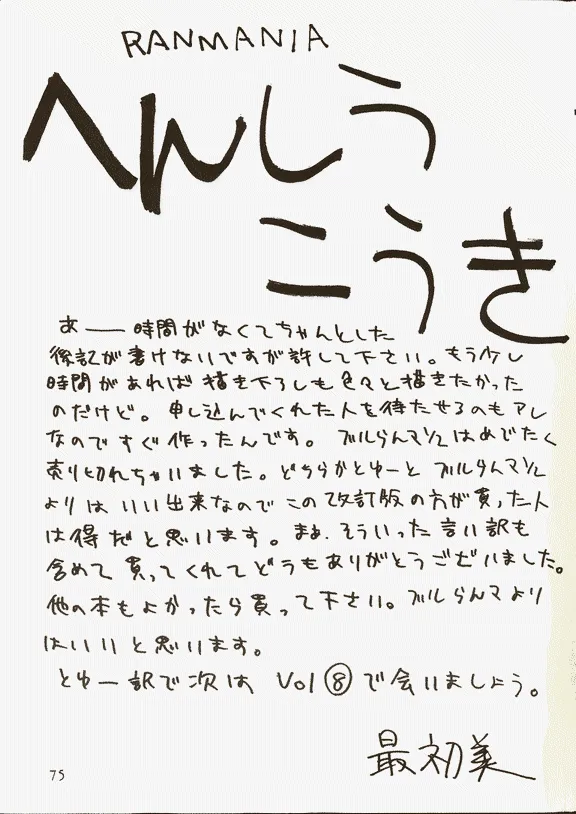 RANMANIA
へんしう
こうき
あ——時間がなくてちゃんとした
後記が書けないですが許して下さい。もう少し
時間があれば描き下ろしも色々と描きたかった
のだけど。申し込んでくれた人を待たせるのもアレ
なのですぐ作ったんです。ブルらんマ1/2はめでたく
売り切れちゃいました。どちらかとゆーとブルらんマ1/2
よりはいい出来なのでこの改訂版の方が買った人
は得だと思います。まぁ、そういった言い訳も
含めて買ってくれてどうもありがとうございました。
他の本もよかったら買って下さい。ブルらんマより
はいいと思います。
とゆー訳で次は Vol ⑧ で会いましょう。
最初美
75